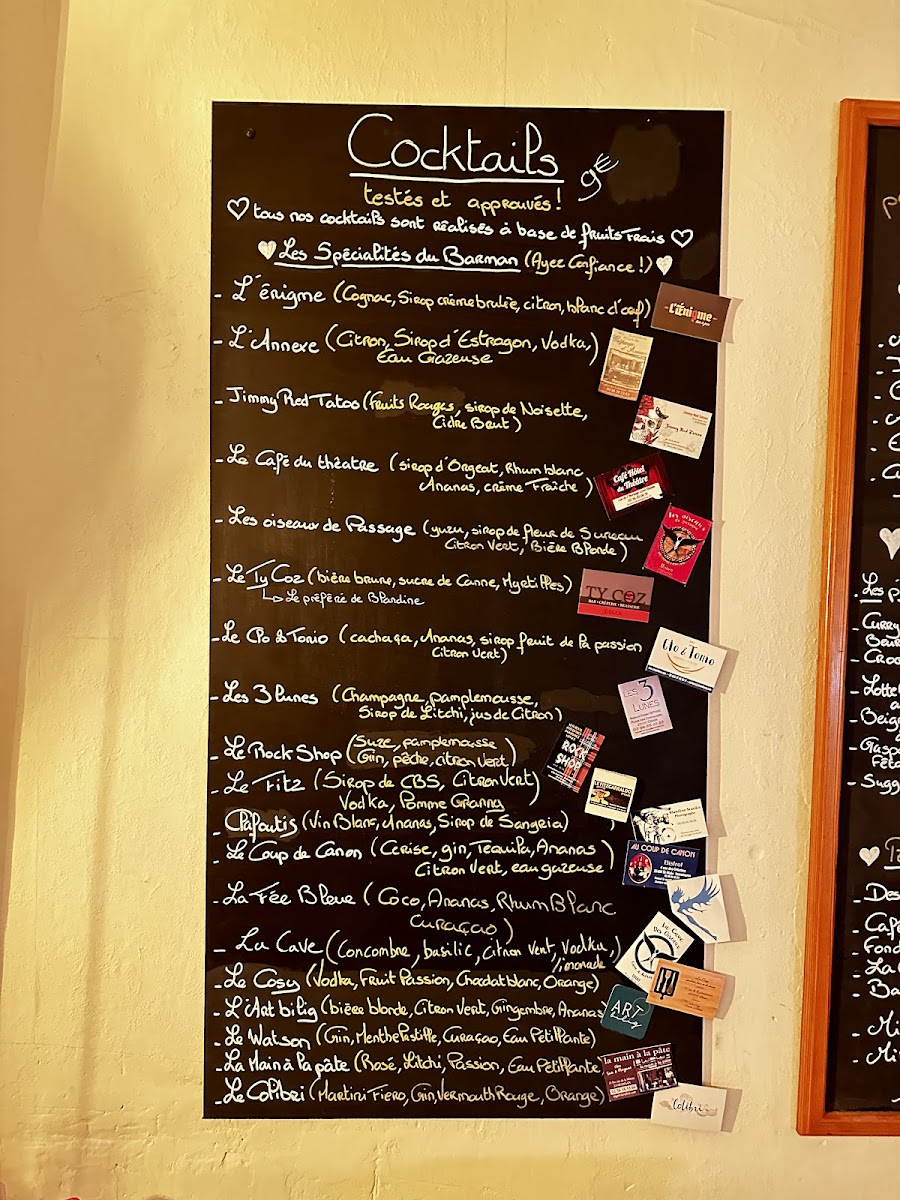 Cocktails
9€
testés et approuvés!
tous nos cocktails sont réalisés à base de fruits frais
Les Spécialités du Barman (Ayee Confiance!)
- L'énigme (Cognac, Sirop crème brulée, citron, blanc d'œuf)
L'ÉNIGME
- L'Annexe (Citron, Sirop d'Estragon, Vodka,)
Eau Gazeuse
- Jimmy Red Tatoo (Fruits Rouges, sirop de Noisette,
Cidre Brut)
Jimmy Red Tatoo
- Le Café du théatre (sirop d'Orgeat, Rhum blanc
Ananas, crème Fraîche)
Café Hôtel
du Théâtre
- Les oiseaux de Passage (yuzu, sirop de fleur de Sureau
Citron Vert, Bière Blonde)
- Le Ty Coz (bière brune, sucre de Canne, Myrtilles)
Le préféré de Blandine
TY COZ
BAR • CRÊPERIE • BRASSERIE
- Le Clo & Tonio (cachaça, Ananas, sirop fruit de la passion
Citron Vert)
Clo & Tonio
- Les 3 lunes (Champagne, pamplemousse,
Sirop de Litchi, jus de Citron)
LES
3
LUNES
- Le Rock Shop (Suze, pamplemousse
Gin, pêche, citron vert)
ROCK
SHOP
- Le Fitz (Sirop de CBS, Citron Vert)
Vodka, Pomme Granny
- Clafoutis (Vin Blanc, Ananas, Sirop de Sangria)
- Le Coup de Canon (Cerise, gin, Tequila, Ananas)
Citron Vert, eau gazeuse
AU COUP DE CANON
Bistrot
- La Fée Bleue (Coco, Ananas, Rhum Blanc
Curaçao)
- La Cave (Concombre, basilic, citron vert, Vodka,)
limonade
LA CAVE
- Le Cosy (Vodka, Fruit Passion, Chocolat blanc, Orange)
- L'Art bilig (bière blonde, Citron Vert, Gingembre, Ananas)
ART
bilig
- Le Watson (Gin, Menthe Pastille, Curaçao, Eau Petillante)
- La Main à la pâte (Rosé, Litchi, Passion, Eau Petillante)
la main à la pâte
- Le Colibri (Martini Fiero, Gin, Vermouth Rouge, Orange)
Colibri